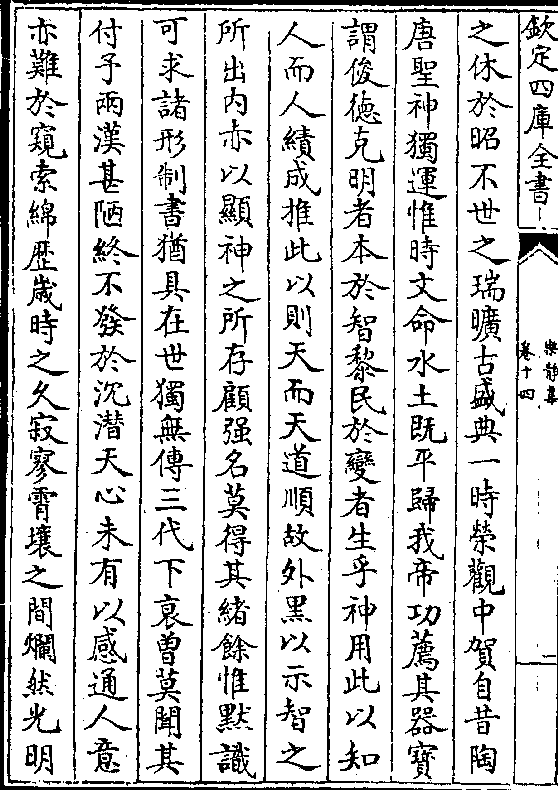 欽定四庫全書
樂静集
卷十四
之休於昭不世之瑞曠古盛典一時榮觀中賀自昔陶
唐聖神獨運惟時文命水土既平歸我帝功薦其器寶
謂俊德克明者本於智黎民於變者生乎神用此以知
人而人績成推此以則天而天道順故外黑以示智之
所出内亦以顯神之所存顧强名莫得其緒餘惟默識
可求諸形制書猶具在世獨無傳三代下衰曽莫聞其
付予兩漢甚陋終不發於沉潛天心未有以感通人意
亦難於窺索綿歴歲時之久寂寥霄壤之間爛然光明